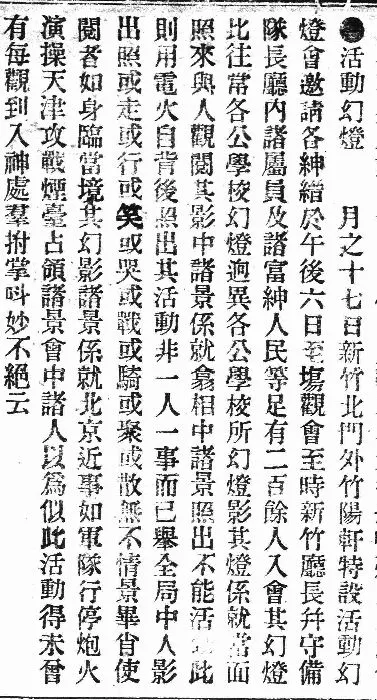 ●活動幻燈　　月之十七日新竹北門外竹陽軒特設活動幻
燈會邀請各紳縉於午後六日至塲觀會至時新竹廳長幷守備
隊長廳內諸屬員及諸富紳人民等足有二百餘人入會其幻燈
比往常各公學校幻燈逈異各公學校所幻燈影其燈係就當面
照來與人觀閱其影中諸景係就翕相中諸景照出不能活 此
則用電火自背後照出其活動非一人一事而已舉全局中人影
出照或走或行或笑或哭或戰或騎或聚或散無不情景畢肖使
閱者如身臨當境其幻影諸景係就北京近事如軍隊行停炮火
演操天津攻戰煙臺占領諸景會中諸人以爲似此活動得未曾
有每觀到入神處羣拊掌呌妙不絕云